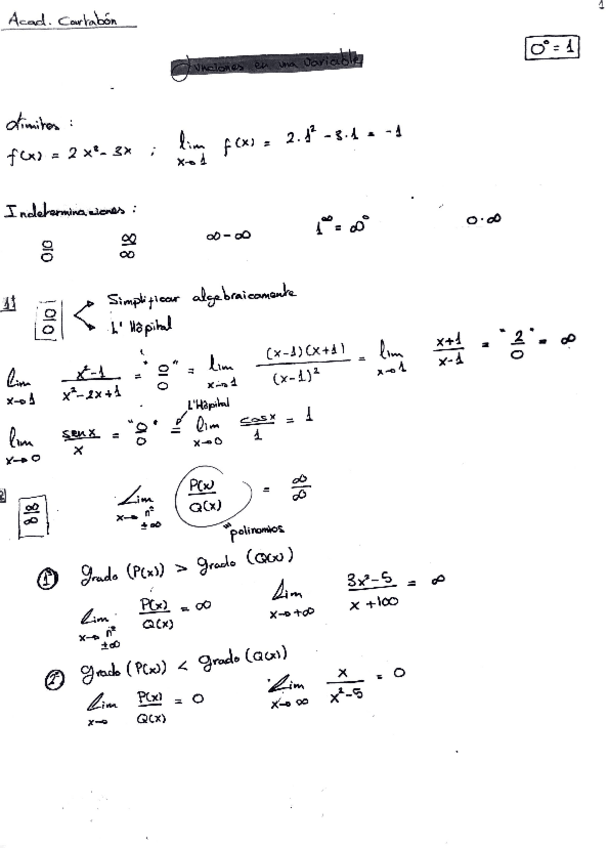 1
Acad. Cartabón
0° = 1
Funciones en una variable
Límites :
f(x) = 2x² - 3x ; lim x→1 f(x) = 2·1² - 3·1 = -1
Indeterminaciones :
0/0 ∞/∞ ∞-∞ 1^∞ = ∞° 0·∞
1) 0/0 Simplificar algebraicamente
L'Hôpital
lim x→1 x²-1 / x²-2x+1 = "0/0" = lim x→1 (x-1)(x+1) / (x-1)² = lim x→1 x+1 / x-1 = "2/0" = ∞
L'Hôpital
lim x→0 senx / x = "0/0" = lim x→0 cosx / 1 = 1
2 ∞/∞ Lim x→ nº ±∞ P(x)/Q(x) = ∞/∞
polinomios
1º grado (P(x)) > grado (Q(x))
Lim x→ nº ±∞ P(x)/Q(x) = ∞ Lim x→+∞ 3x²-5 / x+100 = ∞
2º grado (P(x)) < grado (Q(x))
Lim x→ P(x)/Q(x) = 0 Lim x→∞ x / x²-5 = 0